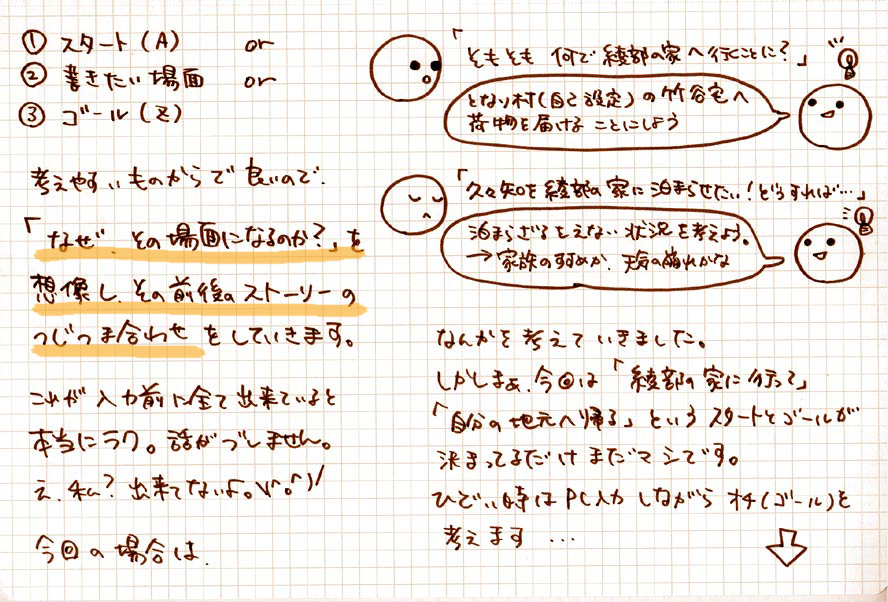 ① スタート(A) or
② 書きたい場面 or
③ ゴール(Z)
考えやすいものからで良いので、
「なぜ、その場面になるのか?」を
想像し、その前後のストーリーの
つじつま合わせをしていきます。
これが入力前に全て出来ていると
本当にラク。話がブレません。
え、私?出来てないよ。\(^o^)/
今回の場合は、
「そもそも何で綾部の家へ行くことに?」
となり村(自己設定)の竹谷宅へ
荷物を届けることにしよう
「久々知を綾部の家に泊まらせたい!どうすれば…」
泊まらざるをえない状況を考えよう。
→家族のすすめか、天気の崩れかな
なんかを考えていきました。
しかしまぁ、今回は「綾部の家に行って」
「自分の地元へ帰る」というスタートとゴールが
決まってるだけまだマシです。
ひどい時はPC入力しながらオチ(ゴール)を
考えます…